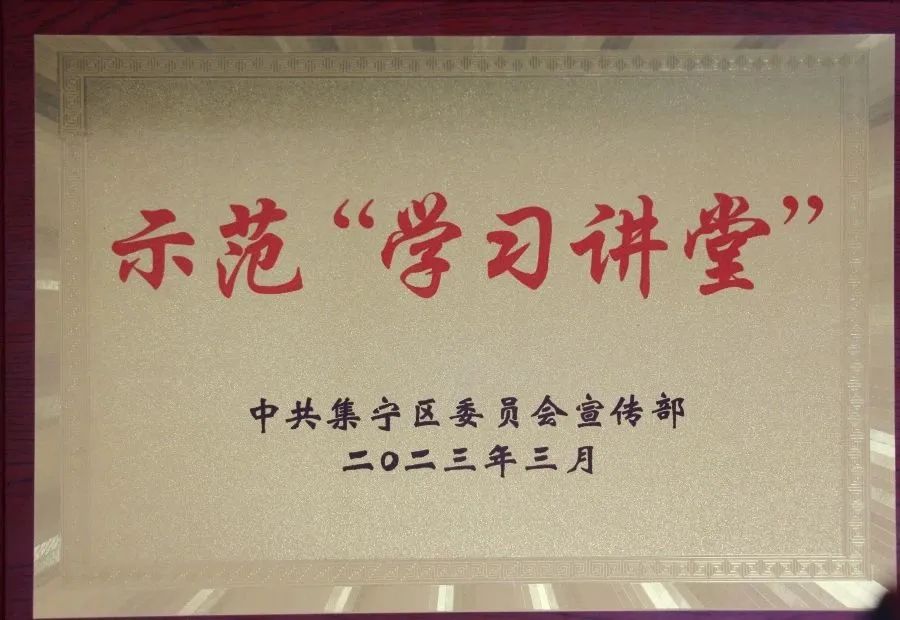 示范“学习讲堂”
中共集宁区委员会宣传部
二〇二三年三月